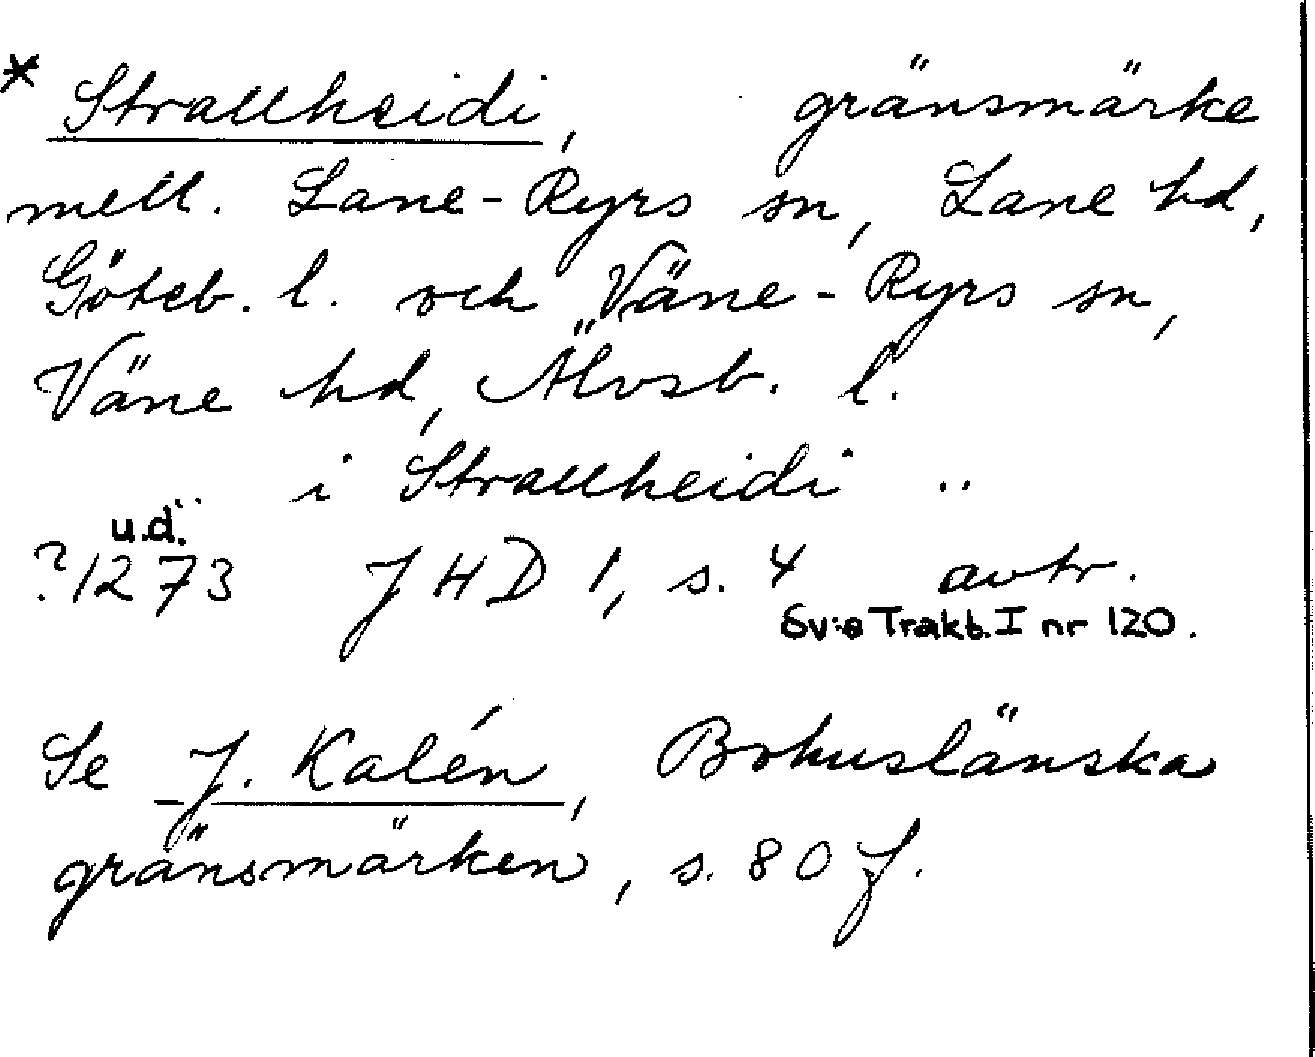 * Strallheidi, gränsmärke
mell. Lane-Ryrs sn, Lane hd,
Göteb. l. och Väne-Ryrs sn,
Väne hd, Älvsb. l.
.. i Strallheidi ..
u.d.
?1273 JHD 1, s. 4 avtr.
Sv:s Trakb. I nr 120.
Se J. Kalén, Bohuslänska
gränsmärken, s. 80 f.